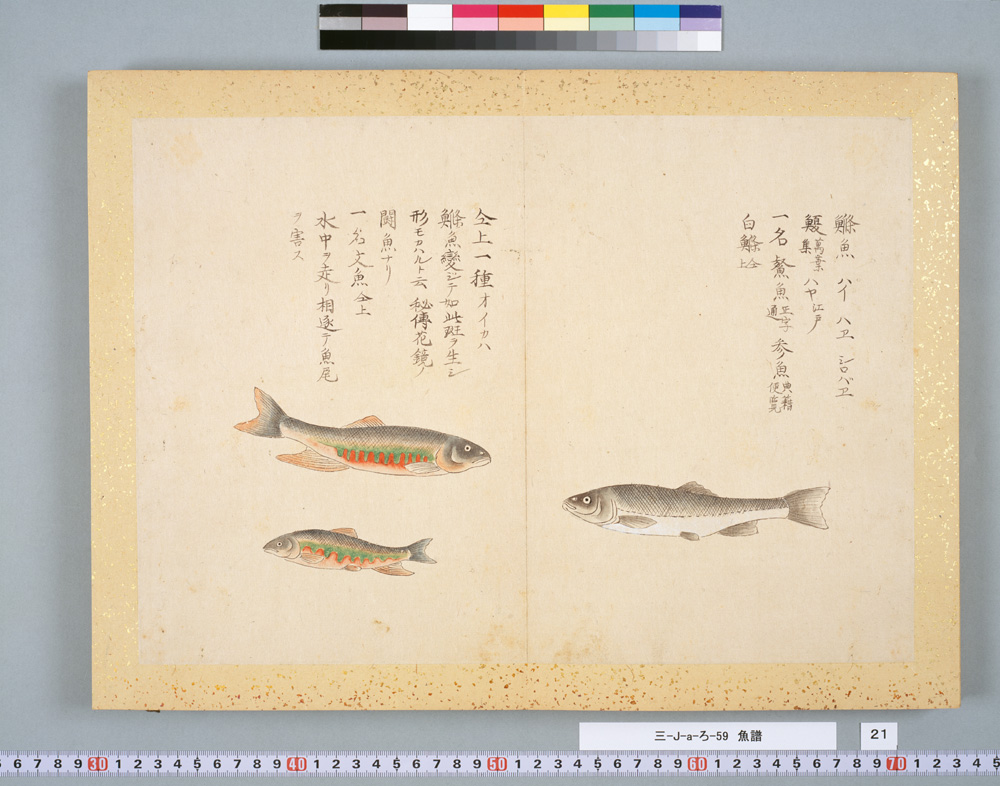 鰷魚 ハイ ハヱ シロバヱ
鰀 萬葉集 ハヤ 江戸
一名 鰲魚 正字通 参魚 典籍便覧
白鰷 仝上
仝上一種 オイカハ
鰷魚變ジテ如此斑ヲ生シ
形モカハルト云 秘傳花鏡ノ
闘魚ナリ
一名文魚 仝上
水中ヲ走リ相逐テ魚尾
ヲ害ス
三-J-a-ろ-59 魚譜
21
6 7 8 9 30 1 2 3 4 5 6 7 8 9 40 1 2 3 4 5 6 7 8 9 50 1 2 3 4 5 6 7 8 9 60 1 2 3 4 5 6 7 8 9 70 1 2 3 4 5